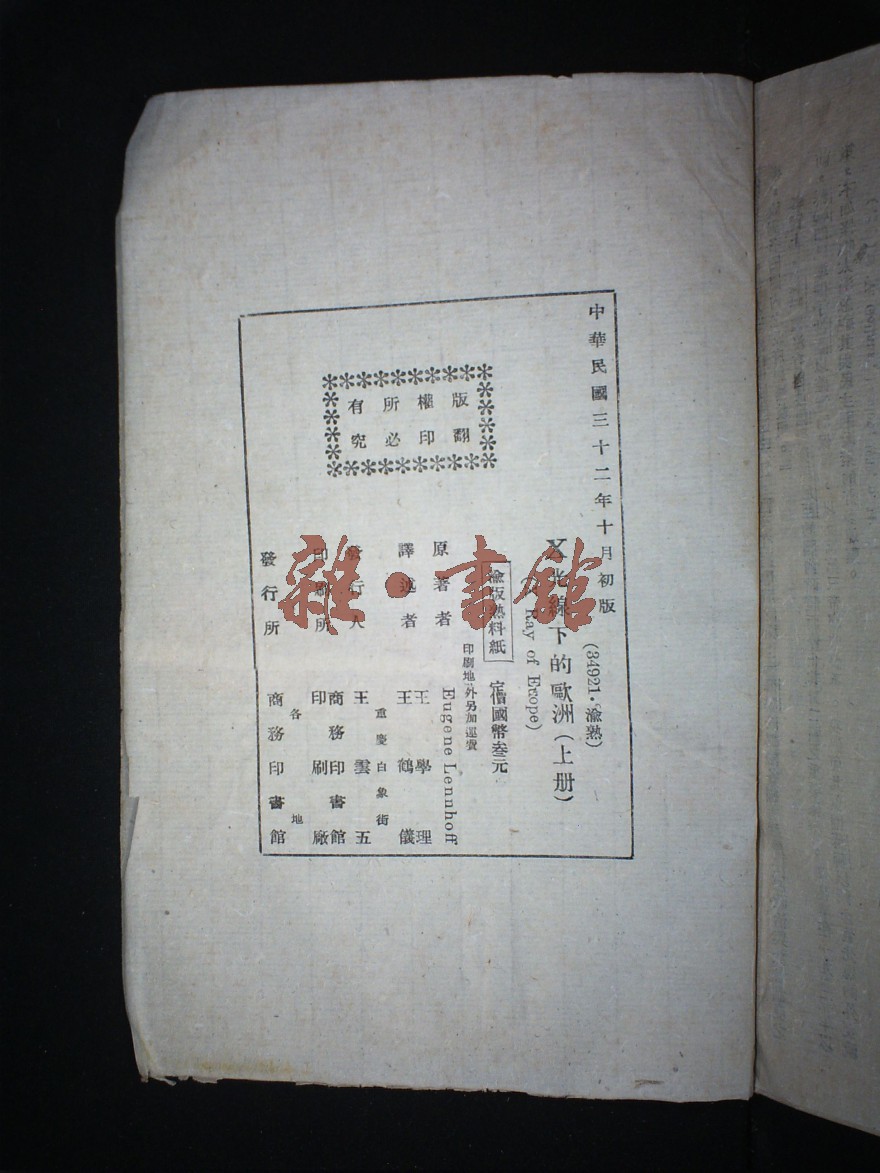 中華民國三十二年十月初版
(34921·渝熟)
X光線下的歐洲(上册)
Ray of Europe)
渝版熟料紙
定價國幣叁元
印刷地外另加運費
版權所有
翻印必究
原著者 Eugene Lennhoff
譯述者 王學理
王鶴儀
發行人 王雲五
重慶白象街
印刷所 商務印書館
印刷廠
發行所 各地
商務印書館
雜·書館